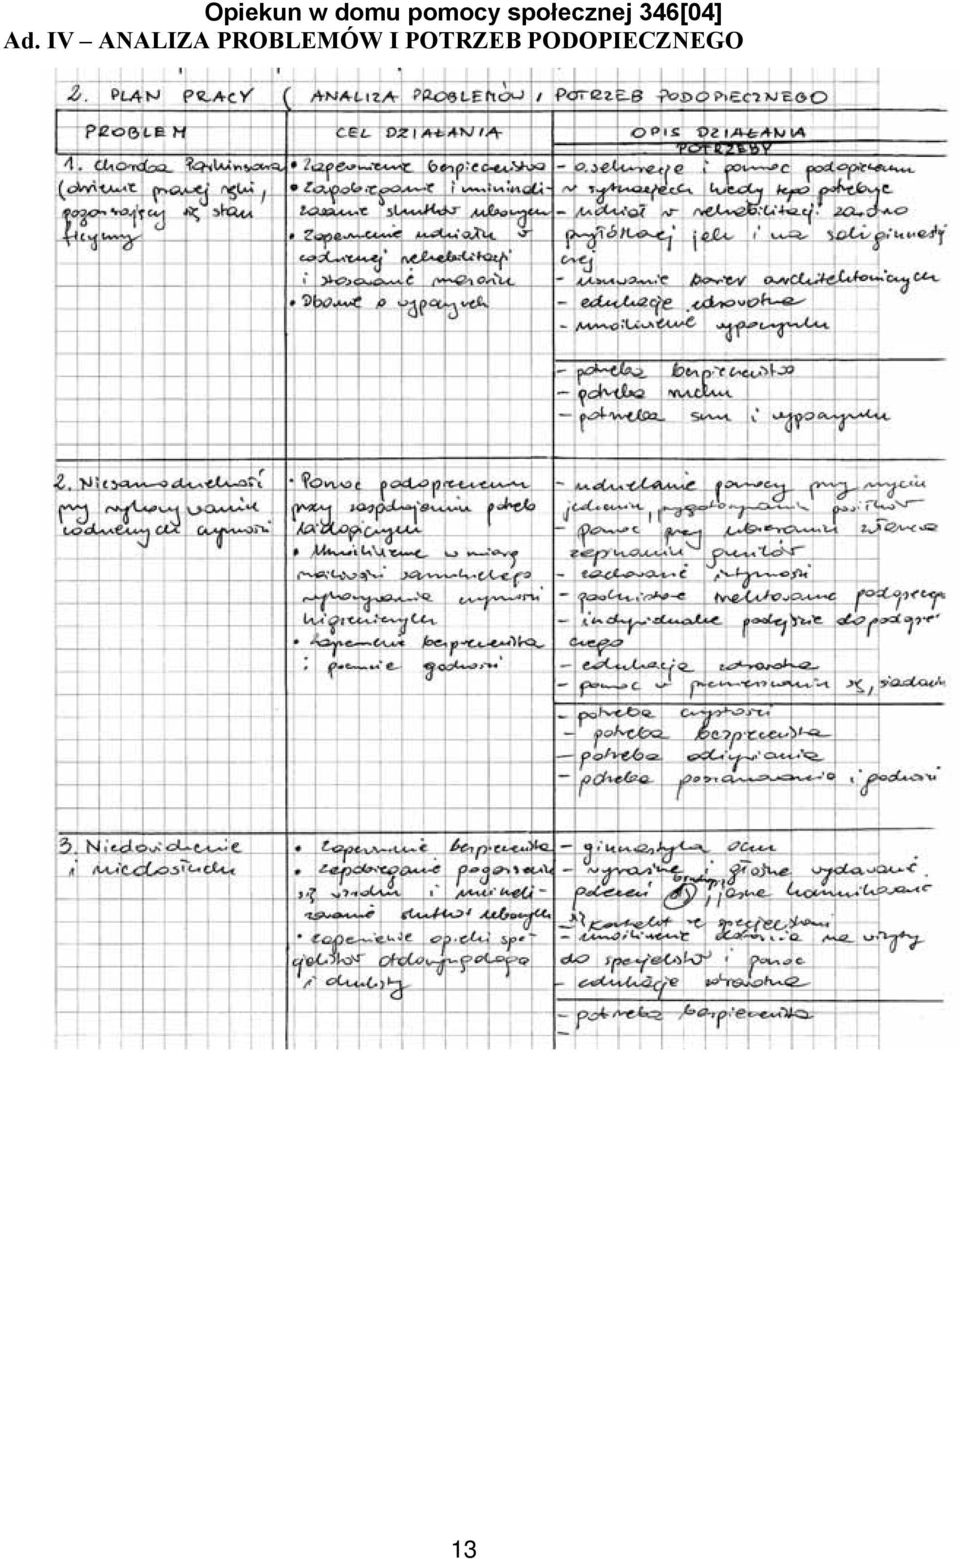 Opiekun w domu pomocy społecznej 346[04]
Ad. IV – ANALIZA PROBLEMÓW I POTRZEB PODOPIECZNEGO
2. PLAN PRACY ( ANALIZA PROBLEMÓW I POTRZEB PODOPIECZNEGO
PROBLEM
CEL DZIAŁANIA
OPIS DZIAŁANIA
POTRZEBY
1. Choroba Parkinsona
(drżenie prawej ręki,
pogarszający się stan
fizyczny
• Zapewnienie bezpieczeństwa
• Zapobieganie i minimali-
zowanie skutków ubocznych
• Zapewnienie udziału w
codziennej rehabilitacji
i stosowanie masażu
• Dbanie o wypoczynek
– asekuracja i pomoc podopiecznemu
w sytuacjach kiedy tego potrzebuje
– udział w rehabilitacji zarówno
przyłóżkowej jak i na sali gimnasty
cznej
– usuwanie barier architektonicznych
– edukacja zdrowotna
– umożliwienie wypoczynku
– potrzeba bezpieczeństwa
– potrzeba ruchu
– potrzeba snu i wypoczynku
2. Niesamodzielność
przy wykonywaniu
codziennych czynności
• Pomoc podopiecznemu
przy zaspokojeniu potrzeb
• Umożliwienie w miarę
możliwości samodzielnego
wykonywania czynności
higienicznych
• Zapewnienie bezpieczeństwa
i poczucie godności
– udzielanie pomocy przy myciu
jedzeniu, przygotowywaniu posiłków
– pomoc przy ubieraniu zwłaszcza
zapinaniu guzików
– zachowanie intymności
– podmiotowe traktowanie podopiecznego
– indywidualne podejście do podopie-
cznego
– edukacja zdrowotna
– pomoc w przemieszczaniu się, siadaniu
– potrzeba czystości
– potrzeba bezpieczeństwa
– potrzeba odżywiania
– potrzeba poszanowania i godności
3. Niedowidzenie
i niedosłuch
• zapewnienie bezpieczeństwa
• zapobieganie pogorszeniu
się wzroku i minimali-
zowanie skutków ubocznych
• zapewnienie opieki spe-
cjalistów otolaryngologa
i okulisty
– gimnastyka oczu
– wyraźne i głośne wydawanie
poleceń, jasne komunikowanie
– kontakt ze specjalistami
– umożliwienie dotarcia na wizyty
do specjalistów i pomoc
– edukacja zdrowotna
– potrzeba bezpieczeństwa
–
13